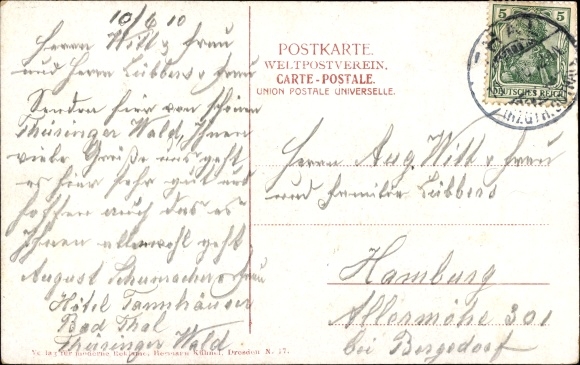 10/6 10
Herrn Witt & Frau
und Herrn Lübbers & Frau
Senden hier vom schönen
Thüringer Wald, Ihnen
viele Grüße uns geht
es hier sehr gut und
hoffen auch das es
Ihnen allen wohl geht
August Schumacher & Frau
Hôtel Tannhäuser
Bad Thal
Thüringer Wald
Verlag für moderne Reklame, Hermann Kühnel, Dresden N. 17.
POSTKARTE.
WELTPOSTVEREIN.
CARTE-POSTALE.
UNION POSTALE UNIVERSELLE.
5 5
DEUTSCHES REICH
Herrn Aug. Witt & Frau
und Familie Lübbers
Hamburg
Allermöhe 301
bei Bergedorf